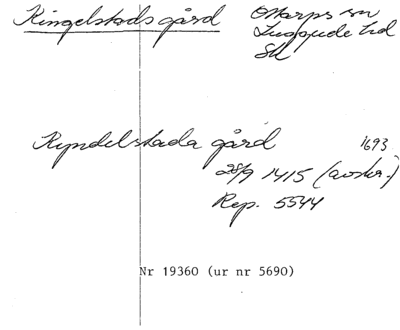 Ringelstads gård
Ottarps sn
Luggude hd
Sk
Ryndelstada gård 1693
28/9 1415 (avskr.)
Rep. 5544
Nr 19360 (ur nr 5690)